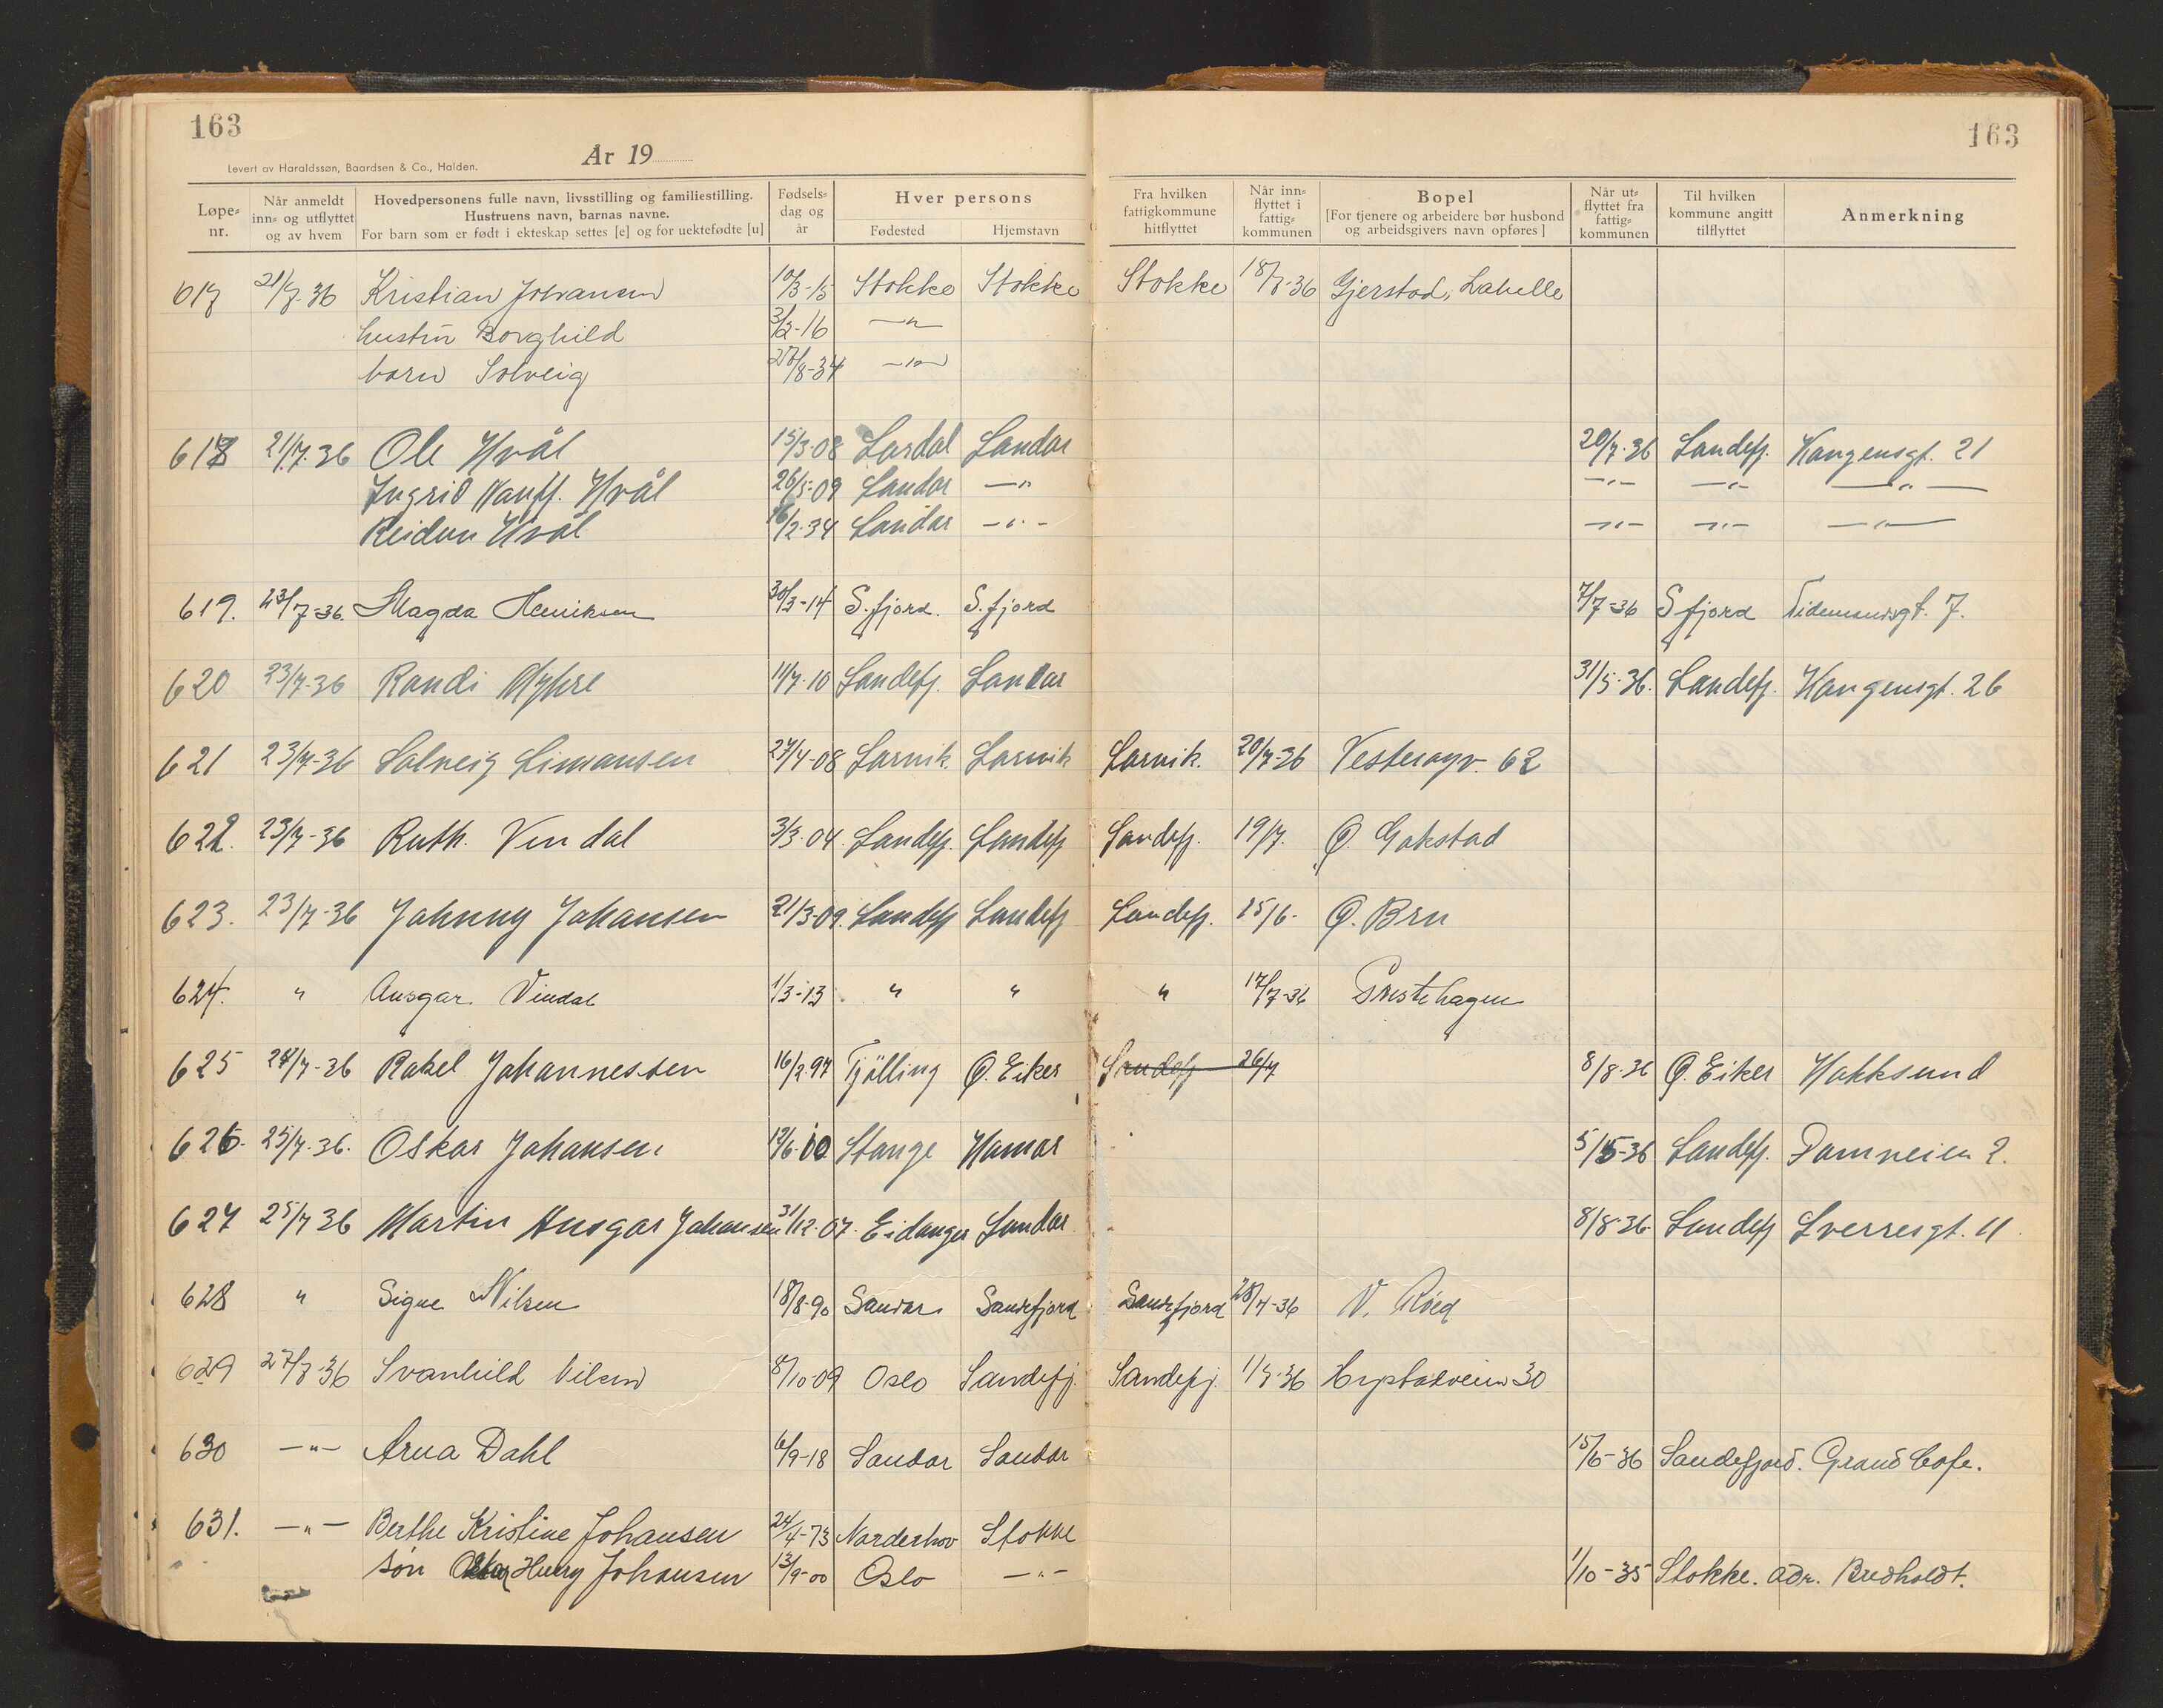 163
163
Levert av Haraldssøn, Baardsen & Co., Halden.
År 19
Løpe-nr.
Når anmeldt inn- og utflyttet og av hvem
Hovedpersonens fulle navn, livsstilling og familiestilling.
Hustruens navn, barnas navne.
For barn som er født i ekteskap settes [e] og for uektefødte [u]
Fødsels-dag og år
Hver persons
Fødested
Hjemstavn
Fra hvilken fattigkommune hitflyttet
Når inn-flyttet i fattig-kommunen
Bopel
[For tjenere og arbeidere bør husbond og arbeidsgivers navn opføres]
Når ut-flyttet fra fattig-kommunen
Til hvilken kommune angitt tilflyttet
Anmerkning
617 21/7-36 Kristian Johansen 10/3-15 Stokke Stokke Stokke 18/7-36 Gjerstad, Labelle
hustru Borghild 3/2-16 -"-
barn Solveig 27/8-34 -"-
618 21/7.36 Ole Hvål 15/3-08 Lardal Sandar 20/7-36 Sandefj. Haugensgt. 21
Ingrid Hvål 26/5-09 Sandar -"- -"- -"- -"-
Reidun Hvål 16/2-34 Sandar -"- -"- -"- -"-
619. 23/7-36. Magda Henriksen 30/3-14 S.fjord. S.fjord 7/7-36 S fjord Tidemandsgt. 7.
620 23/7-36 Randi Myhre 11/7-10 Sandefj. Sandar 31/5-36. Sandefj. Haugensgt. 26
621 23/7-36 Solveig Simonsen 27/4-08 Larvik. Larvik Larvik. 20/7-36 Vesterøyv. 62
622. 23/7-36 Ruth. Vindal 3/3-04. Sandefj. Sandefj Sandefj. 19/7. Ø. Gokstad
623. 23/7-36 Johnny Johansen 21/3-09. Sandefj Sandefj Sandefj. 25/6- Ø. Bru
624. " Ansgar. Vindal 1/3-13 " " " 17/7-36 Prestehagen
625 24/7-36 Rakel Johannessen 16/2-97 Tjølling Ø. Eiker Sandefj 26/7 8/8-36 Ø. Eiker Hokksund
626. 25/7-36. Oskar Johansen 12/6-00 Stange Hamar 5/5-36 Sandefj. Damveien 2.
627 25/7 36 Martin Ansgar Johansen 31/12-07. Eidanger Sandar 8/8-36 Sandefj Sverresgt. 11
628 " Signe Nilsen 18/8-90 Sandar Sandefjord Sandefjord 28/7-36 V. Röed
629 27/7-36 Svanhild Nilsen 8/10-09 Oslo Sandefj. Sandefj. 1/7-36 Krystadveien 30
630 -"- Arna Dahl 6/9-18 Sandar Sandar 15/6-36 Sandefjord. Grand Cafe.
631. -"- Berthe Kristine Johansen 24/4-73 Norderhov Stokke
søn Henry Johansen 13/9-00 Oslo -"- 1/10-35 Stokke. adr. Bredholdt.